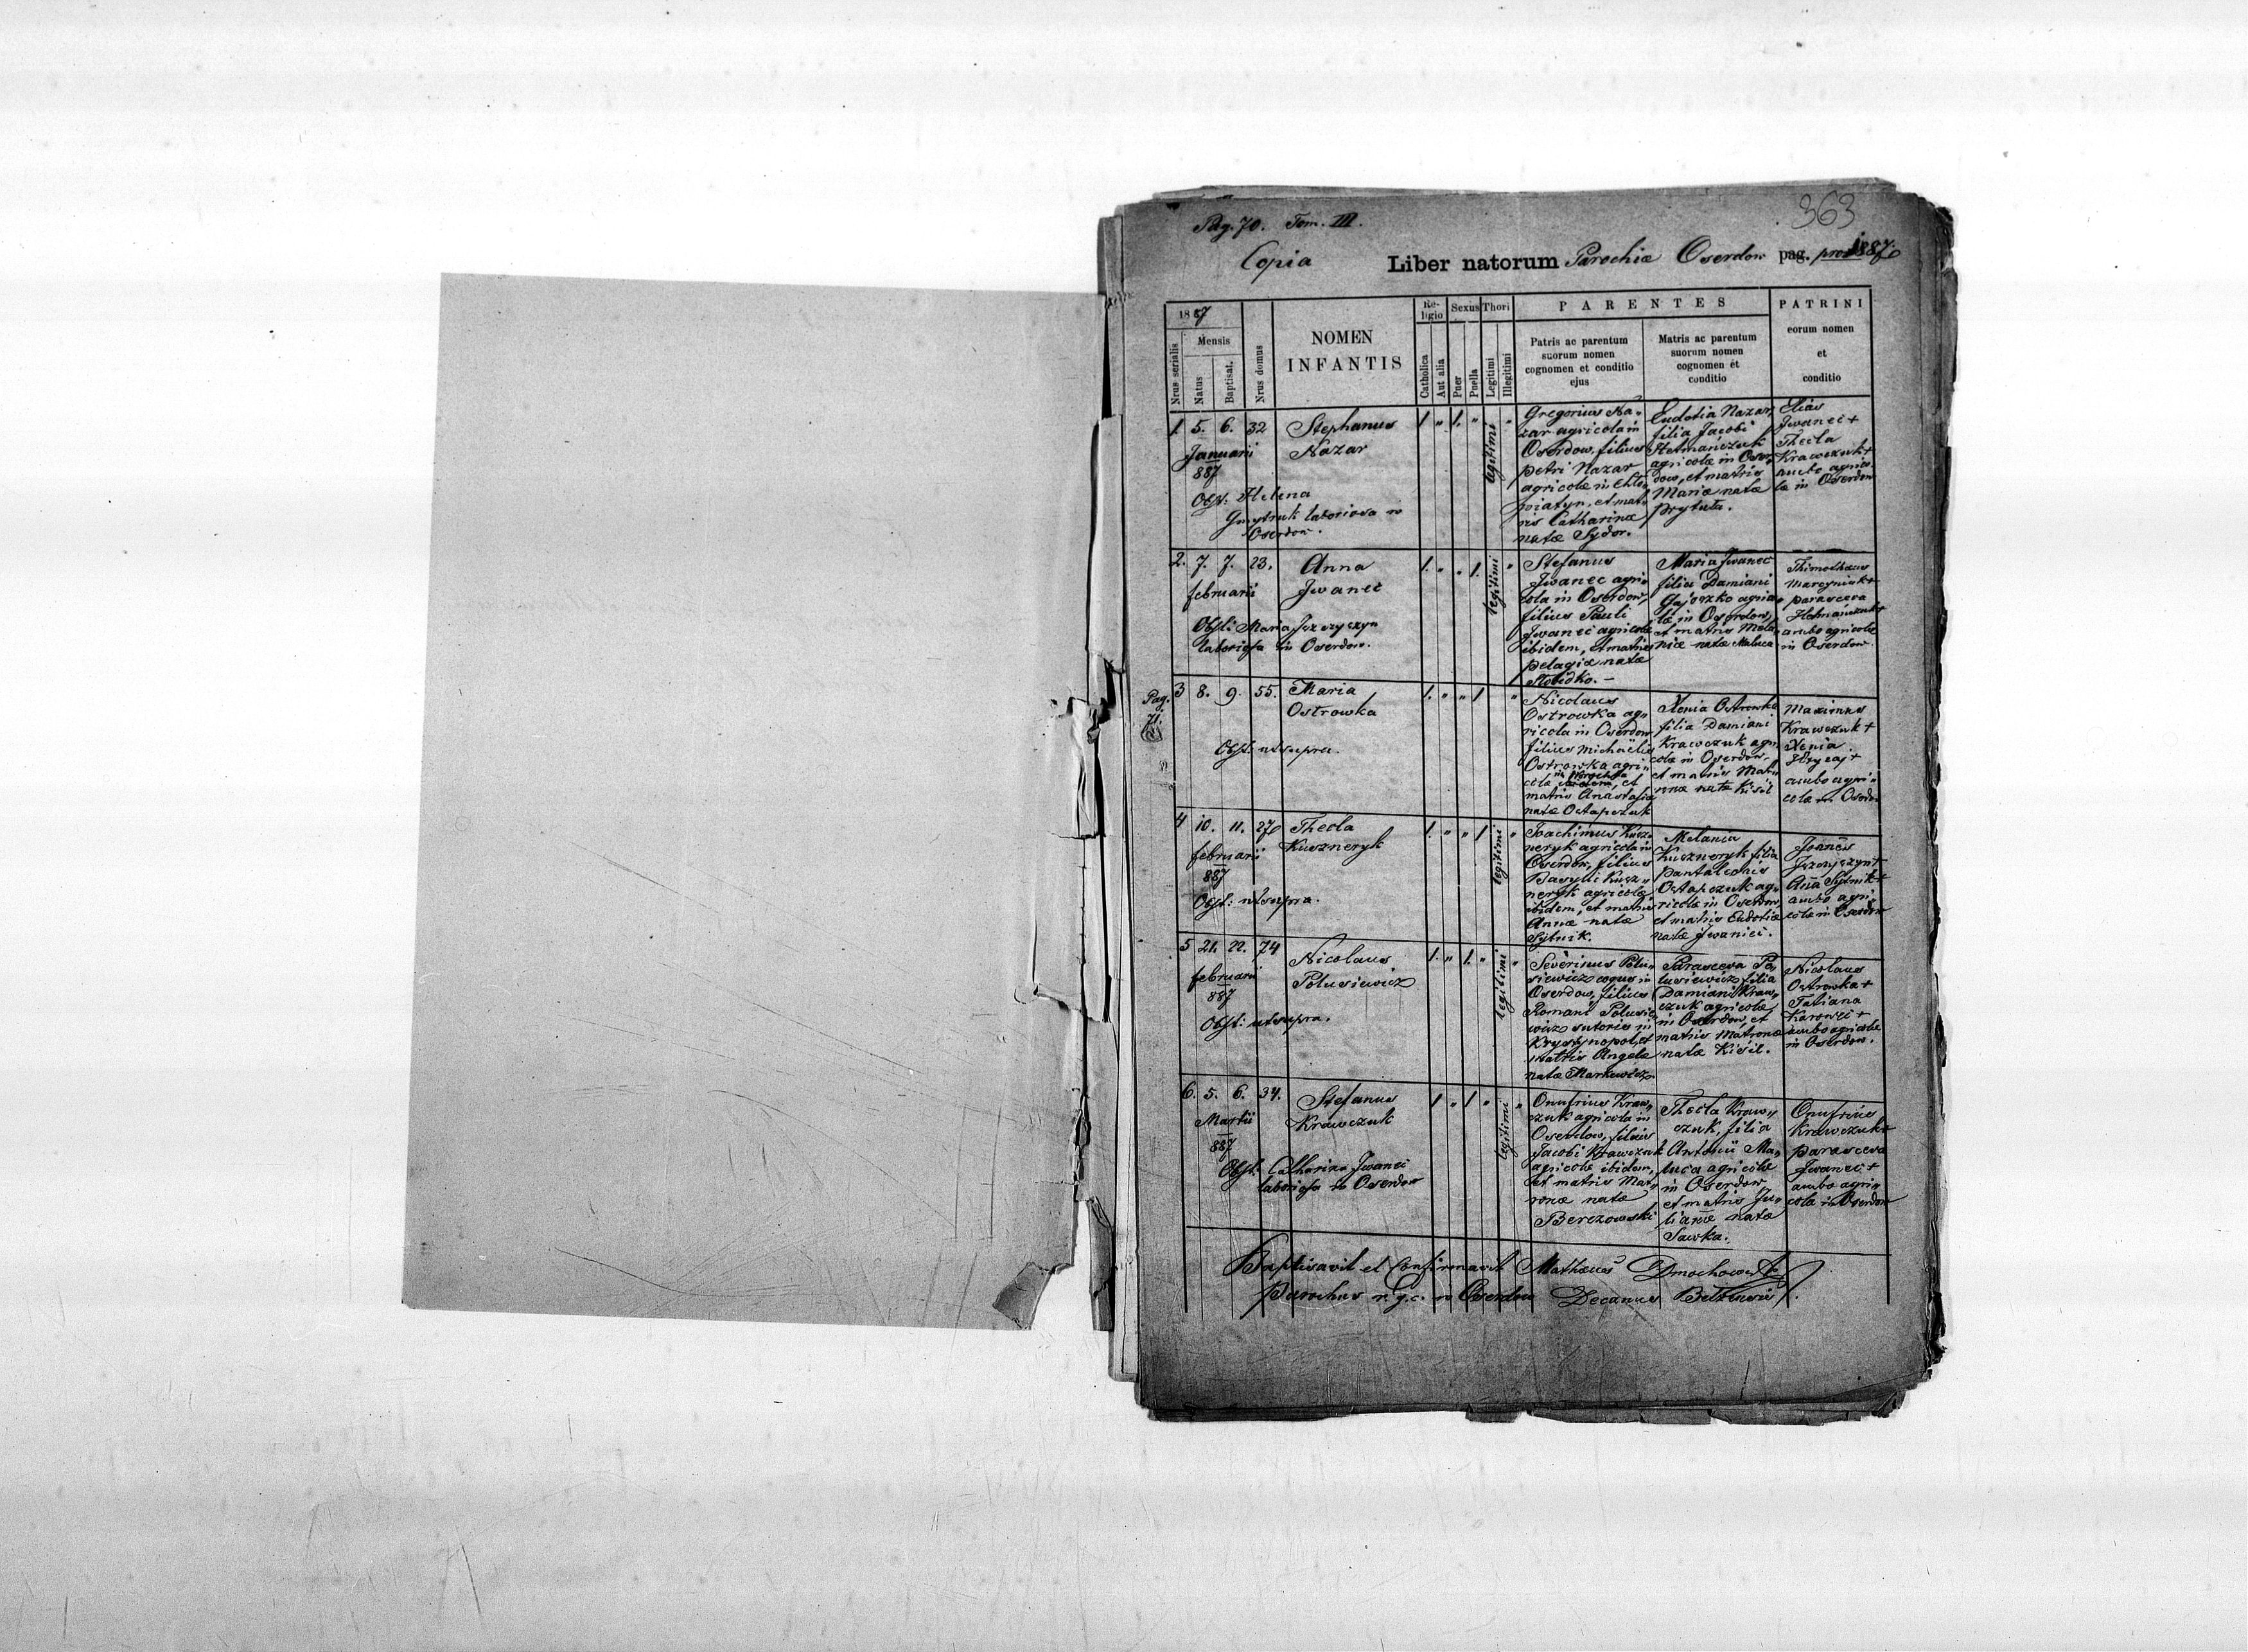 363
Pag. 70. Tom. III.
Copia Liber natorum Parochiæ Oserdow pag. pro 1887.
1887
Nrus serialis
Mensis
Natus
Baptisat.
Nrus domus
NOMEN
INFANTIS
Re-
ligio
Catholica
Aut alia
Sexus
Puer
Puella
Thori
Legitimi
Illegitimi
PARENTES
Patris ac parentum
suorum nomen
cognomen et conditio
ejus
Matris ac parentum
suorum nomen
cognomen et
conditio
PATRINI
eorum nomen
et
conditio
1. 5. 6. 32
Januarii
887
Stephanus
Nazar
Obst: Helena
Gmytruk laboriosa in
Oserdow.
1 " 1. " legitimi "
Gregorius Na-
zar agricola in
Oserdow, filius
Petri Nazar
agricolæ in Chło-
wiatyn, et mat-
ris Catharinæ
natæ Sydor.
Eudotia Nazar,
filia Jacobi
Hetmańczuk
agricolæ in Oser-
dow, et matris
Mariæ natæ
Prytuła.
Elias
Jwaneć +
Thecla
Krawczuk +
ambo agrico-
læ in Oserdow
2. 7. 7. 23.
februarii
Anna
Jwaneć
Obst: Maria Jszczyszyn
laboriosa in Oserdow.
1. " " 1. legitimi "
Stefanus
Jwanec agri-
cola in Oserdow,
filius Pauli
Jwaneć agricolæ
ibidem, et matris
Pelagiæ natæ
Słobidko.
Maria Jwaneć
filia Damiani
Gajoszko agrico-
læ in Oserdow,
et matris Mela-
niæ natæ Maluca
Thimotheus
Marcyniuk +
Parasceva
Hetmańczuk +
ambo agricolæ
in Oserdow.
Pag.
71.
3 8. 9. 55.
Maria
Ostrowka
Obst: ut supra.
1. " " 1 "
Nicolaus
Ostrowka ag-
ricola in Oserdow
filius Michaëlis
Ostrowka agri-
cola ibidem, et
matris Anastasiæ
natæ Ostapczuk
Xenia Ostrowka
filia Damiani
Krawczuk agri-
colæ in Oserdow,
et matris Mat-
ronæ natæ Kisil
Maximus
Krawczuk +
Xenia
Hrycaj +
ambo agri-
colæ in Oserdow
4 10. 11. 27
februarii
887
Thecla
Kuszneryk
Obst: ut supra.
1. " " 1 legitimi "
Joachimus Kusz-
neryk agricola in
Oserdow, filius
Basylii Kusz-
neryk agricolæ
ibidem, et matris
Annæ natæ
Sytnik.
Melania
Kuszneryk filia
Pantaleonis
Ostapczuk ag-
ricolæ in Oserdow
et matris Eudotiæ
natæ Jwanieć.
Joanes
Jszczyszyn +
Anna Sytnik +
ambo agri-
colæ in Oserdow
5 21. 22. 74
februarii
887
Nicolaus
Polusiewicz
Obst: ut supra.
1. " 1. " legitimi "
Severinus Polu-
siewicz coquus in
Oserdow, filius
Romani Polusie-
wicz sutoris in
Krystynopol, et
matris Angelæ
natæ Markiewicz.
Parasceva Po-
lusiewicz filia
Damiani Kraw-
czuk agricolæ
in Oserdow, et
matris Matronæ
natæ Kisil.
Nicolaus
Ostrowka +
Tatiana
Karoweć +
ambo agricolæ
in Oserdow.
6. 5. 6. 34.
Martii
887
Stefanus
Krawczuk
Obst: Catharina Jwaneć
laboriosa in Oserdow
1 " 1 " legitimi "
Onufrius Kraw-
czuk agricola in
Oserdow, filius
Jacobi Krawczuk
agricolæ ibidem,
et matris Mat-
ronæ natæ
Berezowski
Thecla Kraw-
czuk, filia
Antonii Ma-
luca agricolæ
in Oserdow
et matris Ju-
lianæ natæ
Sawka.
Onufrius
Krawczuk +
Parasceva
Jwaneć +
ambo agri-
colæ in Oserdow
Baptisavit et Confirmavit Mathæus Dmochowski
Parochus r. g. c. in Oserdow Decanus Bełzensis